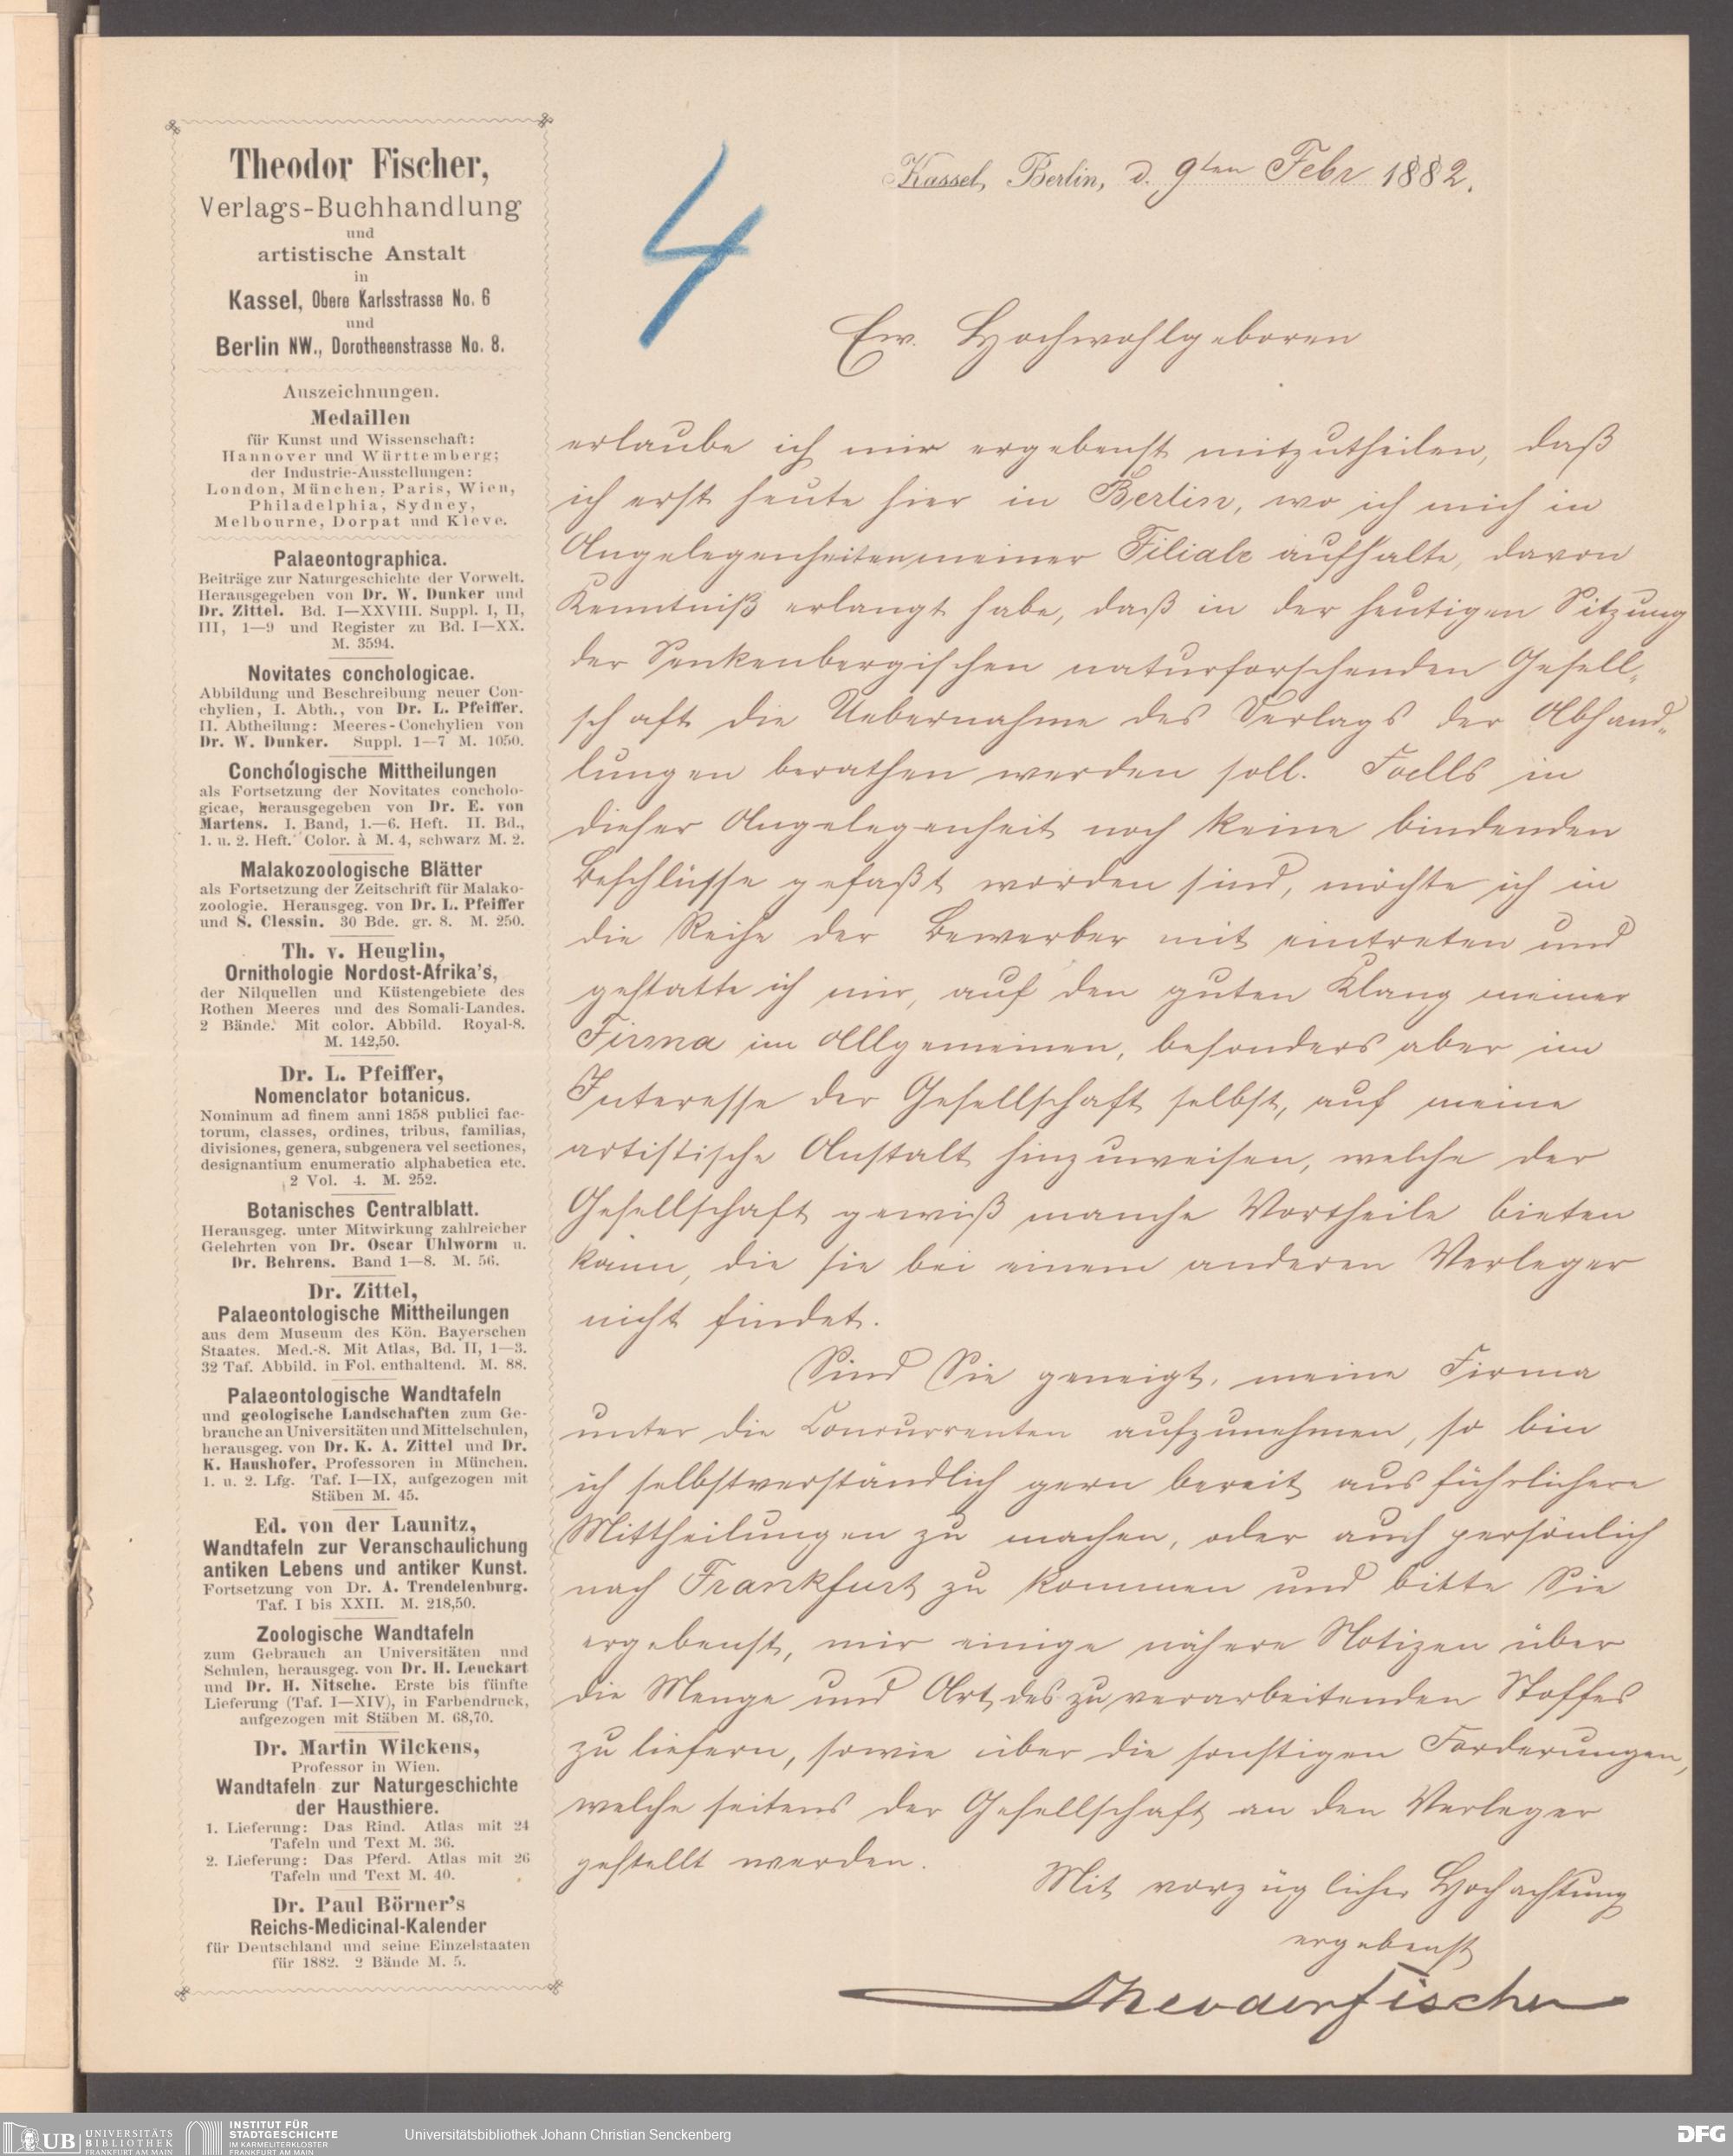 Theodor Fischer,
Verlags-Buchhandlung
und
artistische Anstalt
in
Kassel, Obere Karlsstrasse No. 6
und
Berlin NW., Dorotheenstrasse No. 8.
Auszeichnungen.
Medaillen
für Kunst und Wissenschaft:
Hannover und Württemberg;
der Industrie-Ausstellungen:
London, München, Paris, Wien,
Philadelphia, Sydney,
Melbourne, Dorpat und Kleve.
Palaeontographica.
Beiträge zur Naturgeschichte der Vorwelt.
Herausgegeben von Dr. W. Dunker und
Dr. Zittel. Bd. I—XXVIII. Suppl. I, II,
III, 1—9 und Register zu Bd. I—XX.
M. 3594.
Novitates conchologicae.
Abbildung und Beschreibung neuer Con-
chylien, I. Abth., von Dr. L. Pfeiffer.
II. Abtheilung: Meeres-Conchylien von
Dr. W. Dunker. Suppl. 1—7 M. 1050.
Conchologische Mittheilungen
als Fortsetzung der Novitates concholo-
gicae, herausgegeben von Dr. E. von
Martens. I. Band, 1.—6. Heft. II. Bd.,
1. u. 2. Heft. Color. à M. 4, schwarz M. 2.
Malakozoologische Blätter
als Fortsetzung der Zeitschrift für Malako-
zoologie. Herausgeg. von Dr. L. Pfeiffer
und S. Clessin. 30 Bde. gr. 8. M. 250.
Th. v. Heuglin,
Ornithologie Nordost-Afrika's,
der Nilquellen und Küstengebiete des
Rothen Meeres und des Somali-Landes.
2 Bände. Mit color. Abbild. Royal-8.
M. 142,50.
Dr. L. Pfeiffer,
Nomenclator botanicus.
Nominum ad finem anni 1858 publici fac-
torum, classes, ordines, tribus, familias,
divisiones, genera, subgenera vel sectiones,
designantium enumeratio alphabetica etc.
2 Vol. 4. M. 252.
Botanisches Centralblatt.
Herausgeg. unter Mitwirkung zahlreicher
Gelehrten von Dr. Oscar Uhlworm u.
Dr. Behrens. Band 1—8. M. 56.
Dr. Zittel,
Palaeontologische Mittheilungen
aus dem Museum des Kön. Bayerschen
Staates. Med.-8. Mit Atlas, Bd. II, 1—3.
32 Taf. Abbild. in Fol. enthaltend. M. 88.
Palaeontologische Wandtafeln
und geologische Landschaften zum Ge-
brauche an Universitäten und Mittelschulen,
herausgeg. von Dr. K. A. Zittel und Dr.
K. Haushofer, Professoren in München.
1. u. 2. Lfg. Taf. I—IX, aufgezogen mit
Stäben M. 45.
Ed. von der Launitz,
Wandtafeln zur Veranschaulichung
antiken Lebens und antiker Kunst.
Fortsetzung von Dr. A. Trendelenburg.
Taf. I bis XXII. M. 218,50.
Zoologische Wandtafeln
zum Gebrauch an Universitäten und
Schulen, herausgeg. von Dr. H. Leuckart
und Dr. H. Nitsche. Erste bis fünfte
Lieferung (Taf. I—XIV), in Farbendruck,
aufgezogen mit Stäben M. 68,70.
Dr. Martin Wilckens,
Professor in Wien.
Wandtafeln zur Naturgeschichte
der Hausthiere.
1. Lieferung: Das Rind. Atlas mit 24
Tafeln und Text M. 36.
2. Lieferung: Das Pferd. Atlas mit 26
Tafeln und Text M. 40.
Dr. Paul Börner's
Reichs-Medicinal-Kalender
für Deutschland und seine Einzelstaaten
für 1882. 2 Bände M. 5.
4
Kassel, Berlin, d. 9ten Febr 1882.
Ew. Hochwohlgeboren
erlaube ich mir ergebenst mitzutheilen, daß
ich erst heute hier in Berlin, wo ich mich in
Angelegenheiten meiner Filiale aufhalte, davon
Kenntniß erlangt habe, daß in der heutigen Sitzung
der Senkenbergischen naturforschenden Gesell-
schaft die Uebernahme des Verlags der Abhand-
lungen berathen werden soll. Falls in
dieser Angelegenheit noch keine bindenden
Beschlüsse gefaßt worden sind, möchte ich in
die Reihe der Bewerber mit eintreten und
gestatte ich mir, auf den guten Klang meiner
Firma im Allgemeinen, besonders aber im
Interesse der Gesellschaft selbst, auf meine
artistische Anstalt hinzuweisen, welche der
Gesellschaft gewiß manche Vortheile bieten
kann, die sie bei einem anderen Verleger
nicht findet.
Sind Sie geneigt, meine Firma
unter die Concurrenten aufzunehmen, so bin
ich selbstverständlich gern bereit ausführlichere
Mittheilungen zu machen, oder auch persönlich
nach Frankfurt zu kommen und bitte Sie
ergebenst, mir einige nähere Notizen über
die Menge und Art des zu verarbeitenden Stoffes
zu liefern, sowie über die sonstigen Forderungen,
welche seitens der Gesellschaft an den Verleger
gestellt werden.
Mit vorzüglicher Hochachtung
ergebenst
Theodor Fischer
UB UNIVERSITÄTS
BIBLIOTHEK
FRANKFURT AM MAIN
INSTITUT FÜR
STADTGESCHICHTE
IM KARMELITERKLOSTER
FRANKFURT AM MAIN
Universitätsbibliothek Johann Christian Senckenberg
DFG